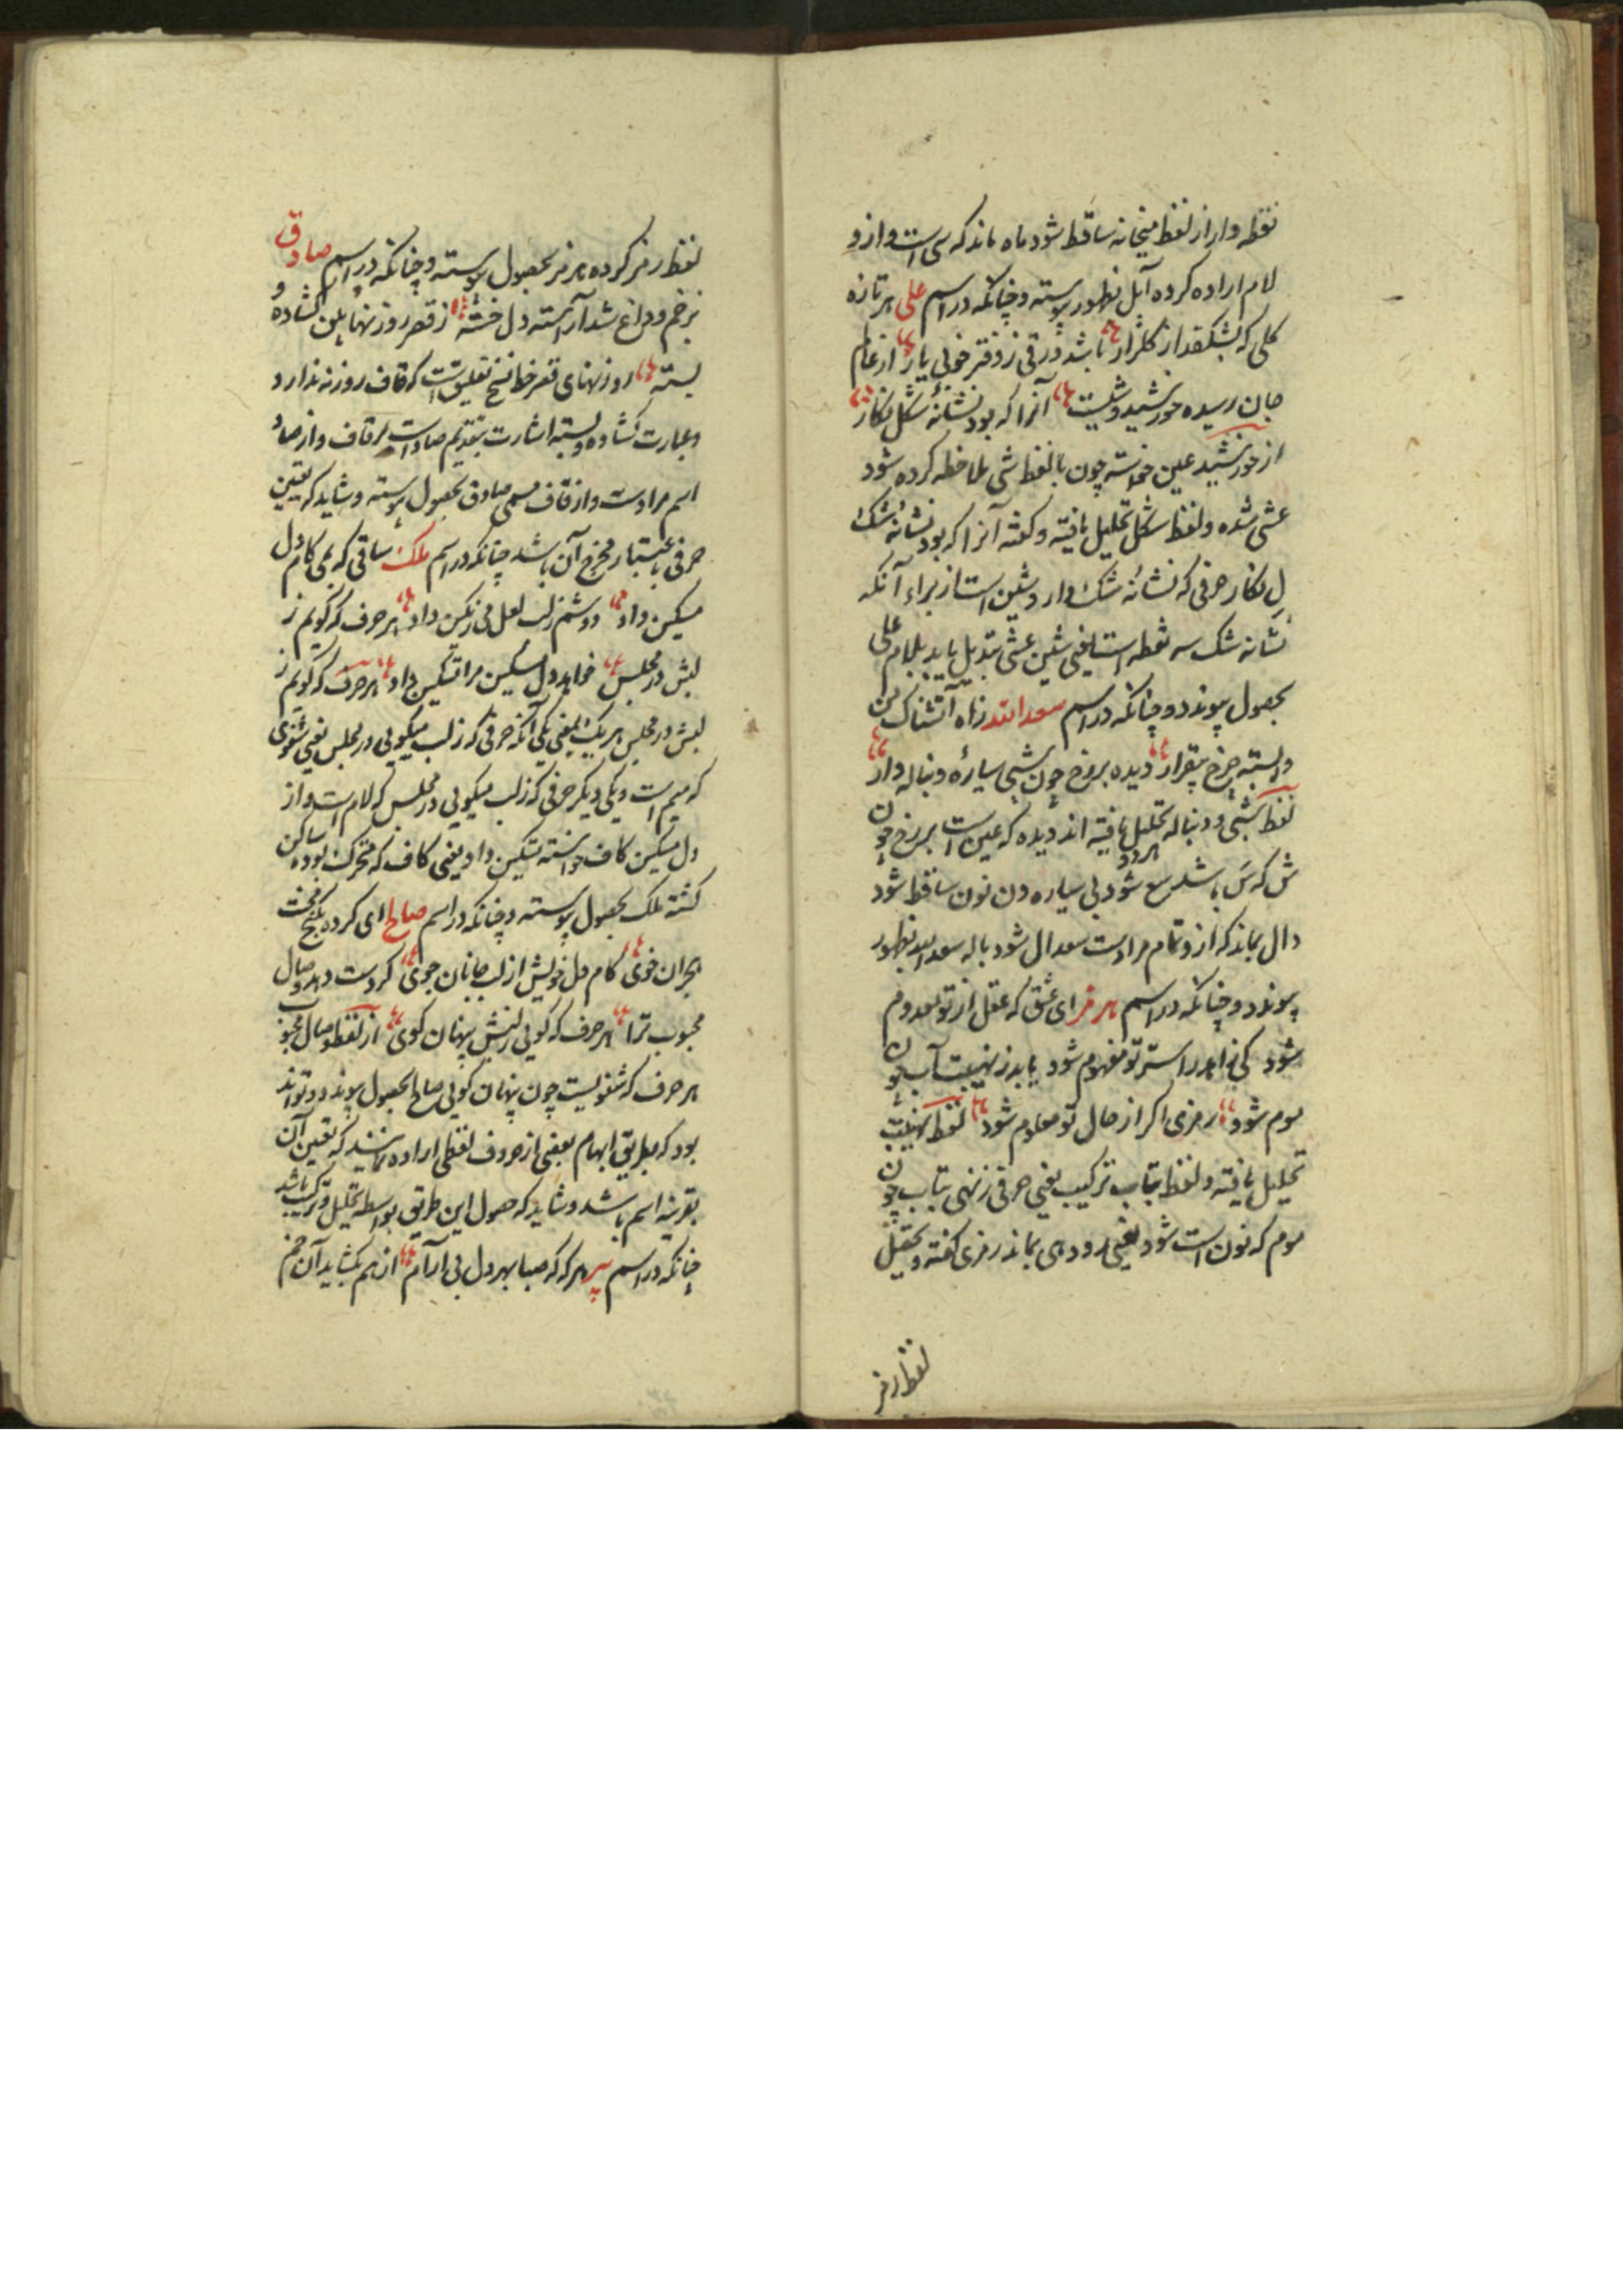 نقطه وار از لفظ میخانه ساقط شود ماه ماند که سی است و ازو
لام اراده کرده آبل بظهور پیوسته و چنانکه در اسم علی هر تازه
کلی که بشکفد از کلزار باشد ورقی ز دفتر خوبی یار از عالم
جان رسیده خورشید وشیست آنرا که بود نشانهٔ شکل نکار
از خورشید عین خواسته چون با لفظ شی ملاحظه کرده شود
عشی شده و لفظ شکل تحلیل یافته و کفته آنرا که بود نشانهٔ شک
لِ نکار حرفی که نشانهٔ شک دارد شین است از براء آنکه
نشانه شک سه نقطه است یعنی شین عشی تبدیل یابد بلام علی
بحصول پیوندد و چنانکه در اسم سعد الله زاه آتشناک من
وابسته چرخ بیقرار دیده بر رخ چون شبی سیارهٔ دنباله دار
لفظ شبی و دنباله تحلیل یافته اند دیده که عین است بر رخ چون
ش که سَ باشد سع شود بی سیاره دن نون ساقط شود
دال بماند که ازو تمام مرادست سعدال شود با له سعد الله بظهور
پیوندد و چنانکه در اسم هرمز ای عشق که عقل از تو معدوم
شود کی زاهد را سر تو مفهوم شود یابد ز نهیبت آب چون
موم شود رمزی اکر از حال تو معلوم شود لفظ نهیبت
تحلیل یافته و لفظ بتاب ترکیب یعنی حرفی ز نهی بتاب چون
موم که نون است شود یعنی رود هی بماند رمزی کفته و بحقیقت
لفظ رمز
لفظ رمز کرده هرمز بحصول پیوسته و چنانکه در اسم صادق
بزخم و داغ شد آراسته دل خسته ز قصر روزنها بین کشاده و
بسته روزنهای قصر خط نسخ تعلیق است که قاف روزنه ندارد
و عبارت کشاده و بسته اشارت بتقدیم صاد است بر قاف و از صاد
اسم مرادست و از قاف مسمی صادق بحصول پیوسته و شاید که تعین
حرفی باعتبار مخرج آن باشد چنانکه در اسم ملک ساقی که بمی کام دل
مسکین داد دوشم ز لب لعل می رنکین داد هر حرف که کویم ز
لبش در مجلس خواهد دل مسکین مرا تسکین داد هر حرف که کویم ز
لبش در مجلس هر یک بمعنی یکی آنکه حرفی که ز لب میکویی در مجلس یعنی شفوی
که میم است و یکی دیکر حرفی که ز لب میکویی در مجلس که لام است و از
دل مسکین کاف خواسته تسکین داد یعنی کاف که متحرک بوده ساکن
کشته ملک بحصول پیوسته و چنانکه در اسم صالح ای کرده بکنج محنت
هجران خوی کام دل خویش از لب جانان جوی کر دست دهد وصال
محبوب ترا هر حرف که کویی ز لبش پنهان کوی از لفظ وصال محبوب
هر حرف که شفویست چون پنهان کویی صالح بحصول پیوندد و تواند
بود که بطریق ابهام بعضی از حروف لفظی اراده نمایند که تعین آن
بقرینه اسم باشد و شاید که حصول این طریق بواسطه تحلیل و ترکیب باشد
چنانکه در اسم پیر هر که که صبا بهر دل بی آرام از هم بکشاید آن خم